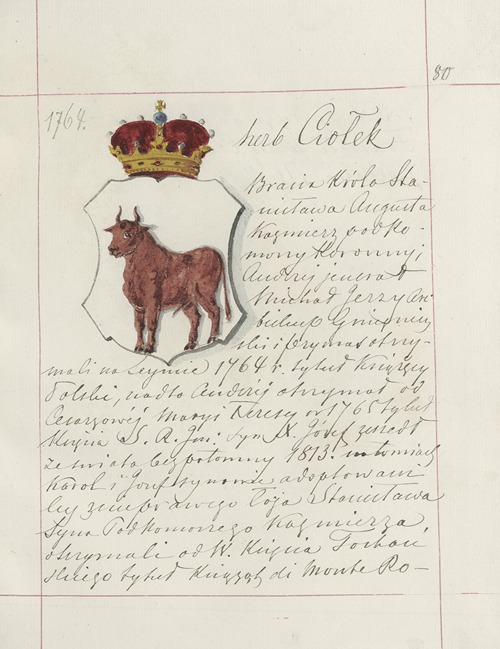 80
1764.
herb Ciołek
Bracia Króla Sta-
nisława Augusta
Kazimierz podko-
morzy Koronny,
Andrzej jenerał
Michał Jerzy Ar-
biskup Gnieźnień
ski i Prymas otrzy-
mali na sejmie 1764 r. tytuł Książęcy
Polski, nadto Andrzej otrzymał od
Cesarzowéj Maryi Teresy w 1765 tytuł
Księcia S. R. Im: Syn X. Józef zszedł
ze świata bezpotomny 1813.
Karol i Józef synowie adoptowani
łoża Stanisława
Syna Podkomorzego Kazimierza,
otrzymali od W. Księcia Toskań
skiego tytuł Książąt di Monte Ro-